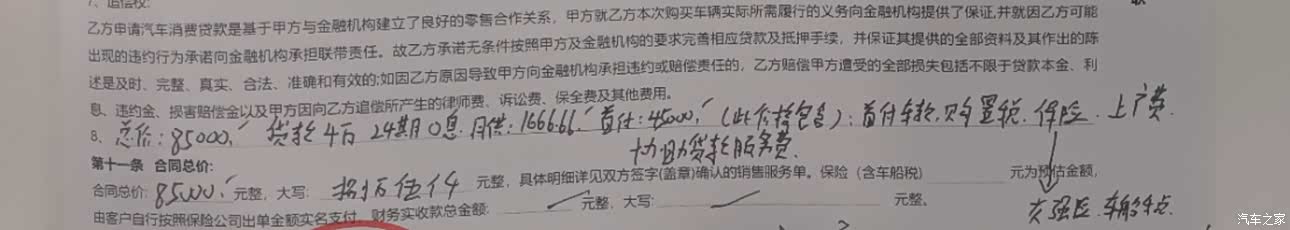 7、追偿权:
乙方申请汽车消费贷款是基于甲方与金融机构建立了良好的零售合作关系，甲方就乙方本次购买车辆实际所需履行的义务向金融机构提供了保证,并就因乙方可能
出现的违约行为承诺向金融机构承担联带责任。故乙方承诺无条件按照甲方及金融机构的要求完善相应贷款及抵押手续，并保证其提供的全部资料及其作出的陈
述是及时、完整、真实、合法、准确和有效的;如因乙方原因导致甲方向金融机构承担违约或赔偿责任的，乙方赔偿甲方遭受的全部损失包括不限于贷款本金、利
息、违约金、损害赔偿金以及甲方因向乙方追偿所产生的律师费、诉讼费、保全费及其他费用。
8、总价:85000,贷款4万 24期0息.月供:1666.66 首付:45000,(此价格包含):首付车款.购置税.保险.上户费.
协助贷款服务费.
第十一条 合同总价:
合同总价:85000元整，大写: 捌万伍仟 元整，具体明细详见双方签字(盖章)确认的销售服务单。保险（含车船税） 元为预估金额，
由客户自行按照保险公司出单金额实名支付，财务实收款总金额: 元整，大写: 元整。
交强险.车船
汽车之家